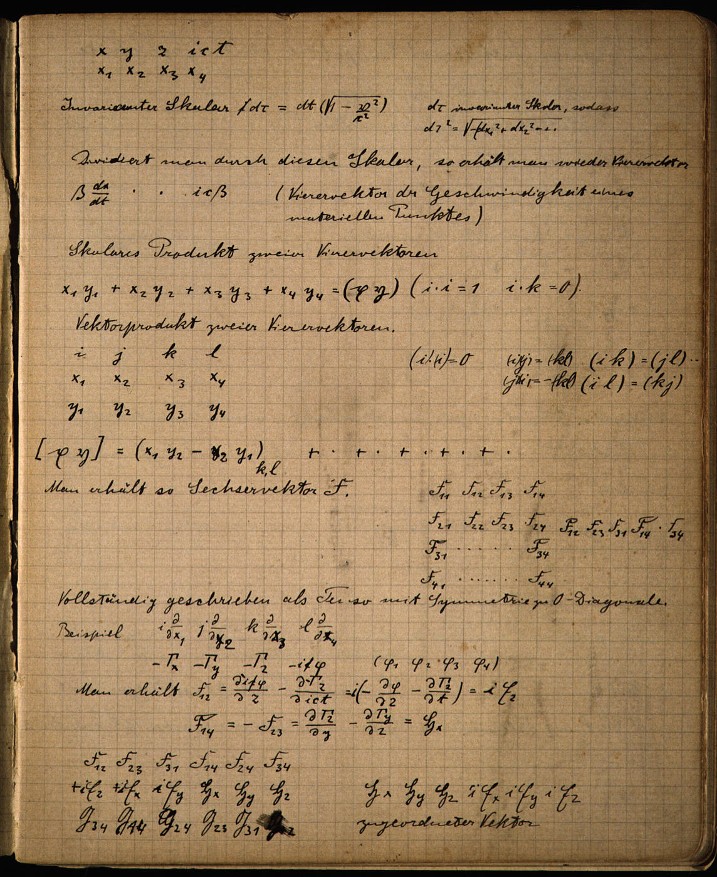 x y z ict
x₁ x₂ x₃ x₄
Invarianter Skalar dτ = dt(√1 − v²/c²) dτ invarianter Skalar, sodass
dτ² = √−(dx₁² + dx₂² − ..
Dividiert man durch diesen Skalar, so erhält man wieder Vierervektor
β dx/dt · · icβ (Vierervektor der Geschwindigkeit eines
materiellen Punktes)
Skalares Produkt zweier Vierervektoren
x₁y₁ + x₂y₂ + x₃y₃ + x₄y₄ = (φ y) (i·i = 1 i·k = 0).
Vektorprodukt zweier Vierervektoren.
i j k l (i i) = 0 (ij) = (kl) (ik) = (jl) ..
x₁ x₂ x₃ x₄ (ji) = −(kl) (il) = (kj)
y₁ y₂ y₃ y₄
[φ y] = (x₁y₂ − x₂y₁)k,l + · + · + · + · + ·
Man erhält so Sechservektor F. F₁₁ F₁₂ F₁₃ F₁₄
F₂₁ F₂₂ F₂₃ F₂₄ F₁₂ F₂₃ F₃₁ F₁₄ · F₃₄
F₃₁ ······ F₃₄
F₄₁ ······· F₄₄
Vollständig geschrieben als Tensor mit Symmetrie zu 0-Diagonale.
Beispiel i ∂/∂x₁ j ∂/∂x₂ k ∂/∂x₃ l ∂/∂x₄
−Γx −Γy −Γz −iφ (φ₁ φ₂ φ₃ φ₄)
Man erhält F₁₂ = ∂iφ/∂z − ∂Γz/∂ict = i(−∂φ/∂z − ∂Γz/∂t) = i𝔈z
F₁₄ = −F₂₃ = ∂Γz/∂y − ∂Γy/∂z = 𝔥x
F₁₂ F₂₃ F₃₁ F₁₄ F₂₄ F₃₄
+i𝔈z +i𝔈x i𝔈y 𝔥x 𝔥y 𝔥z 𝔥x 𝔥y 𝔥z i𝔈x i𝔈y i𝔈z
J₃₄ J₁₄ J₂₄ J₂₃ J₃₁ zugeordneter Vektor